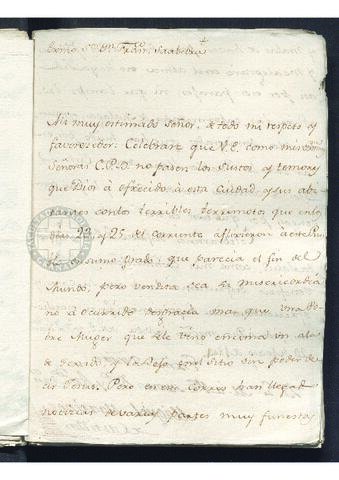 Exmo. Sr. Dn. Fran.co Saabedra
Mi muy estimado Señor, de todo mi respeto y
favorecedor: Celebrare que V.E. como mis
Señoras C.P.B. no pasen los Sustos y temores
que Dios à ofrecido à esta Ciudad y sus
contto terribles terremotos que en
dias 22 y 25 del corriente aflixieron à este
sumo grado: que parecia el fin del
Mundo, pero vendita sea la misericordia
no à ocurrido desgracia mas que una Po-
bre Muger que le vino encima un ala
de texado y la dejo en el Sitio sin poder de-
cir Jesus. Pero en este Correo han llegad
noticias de varias partes muy funestas